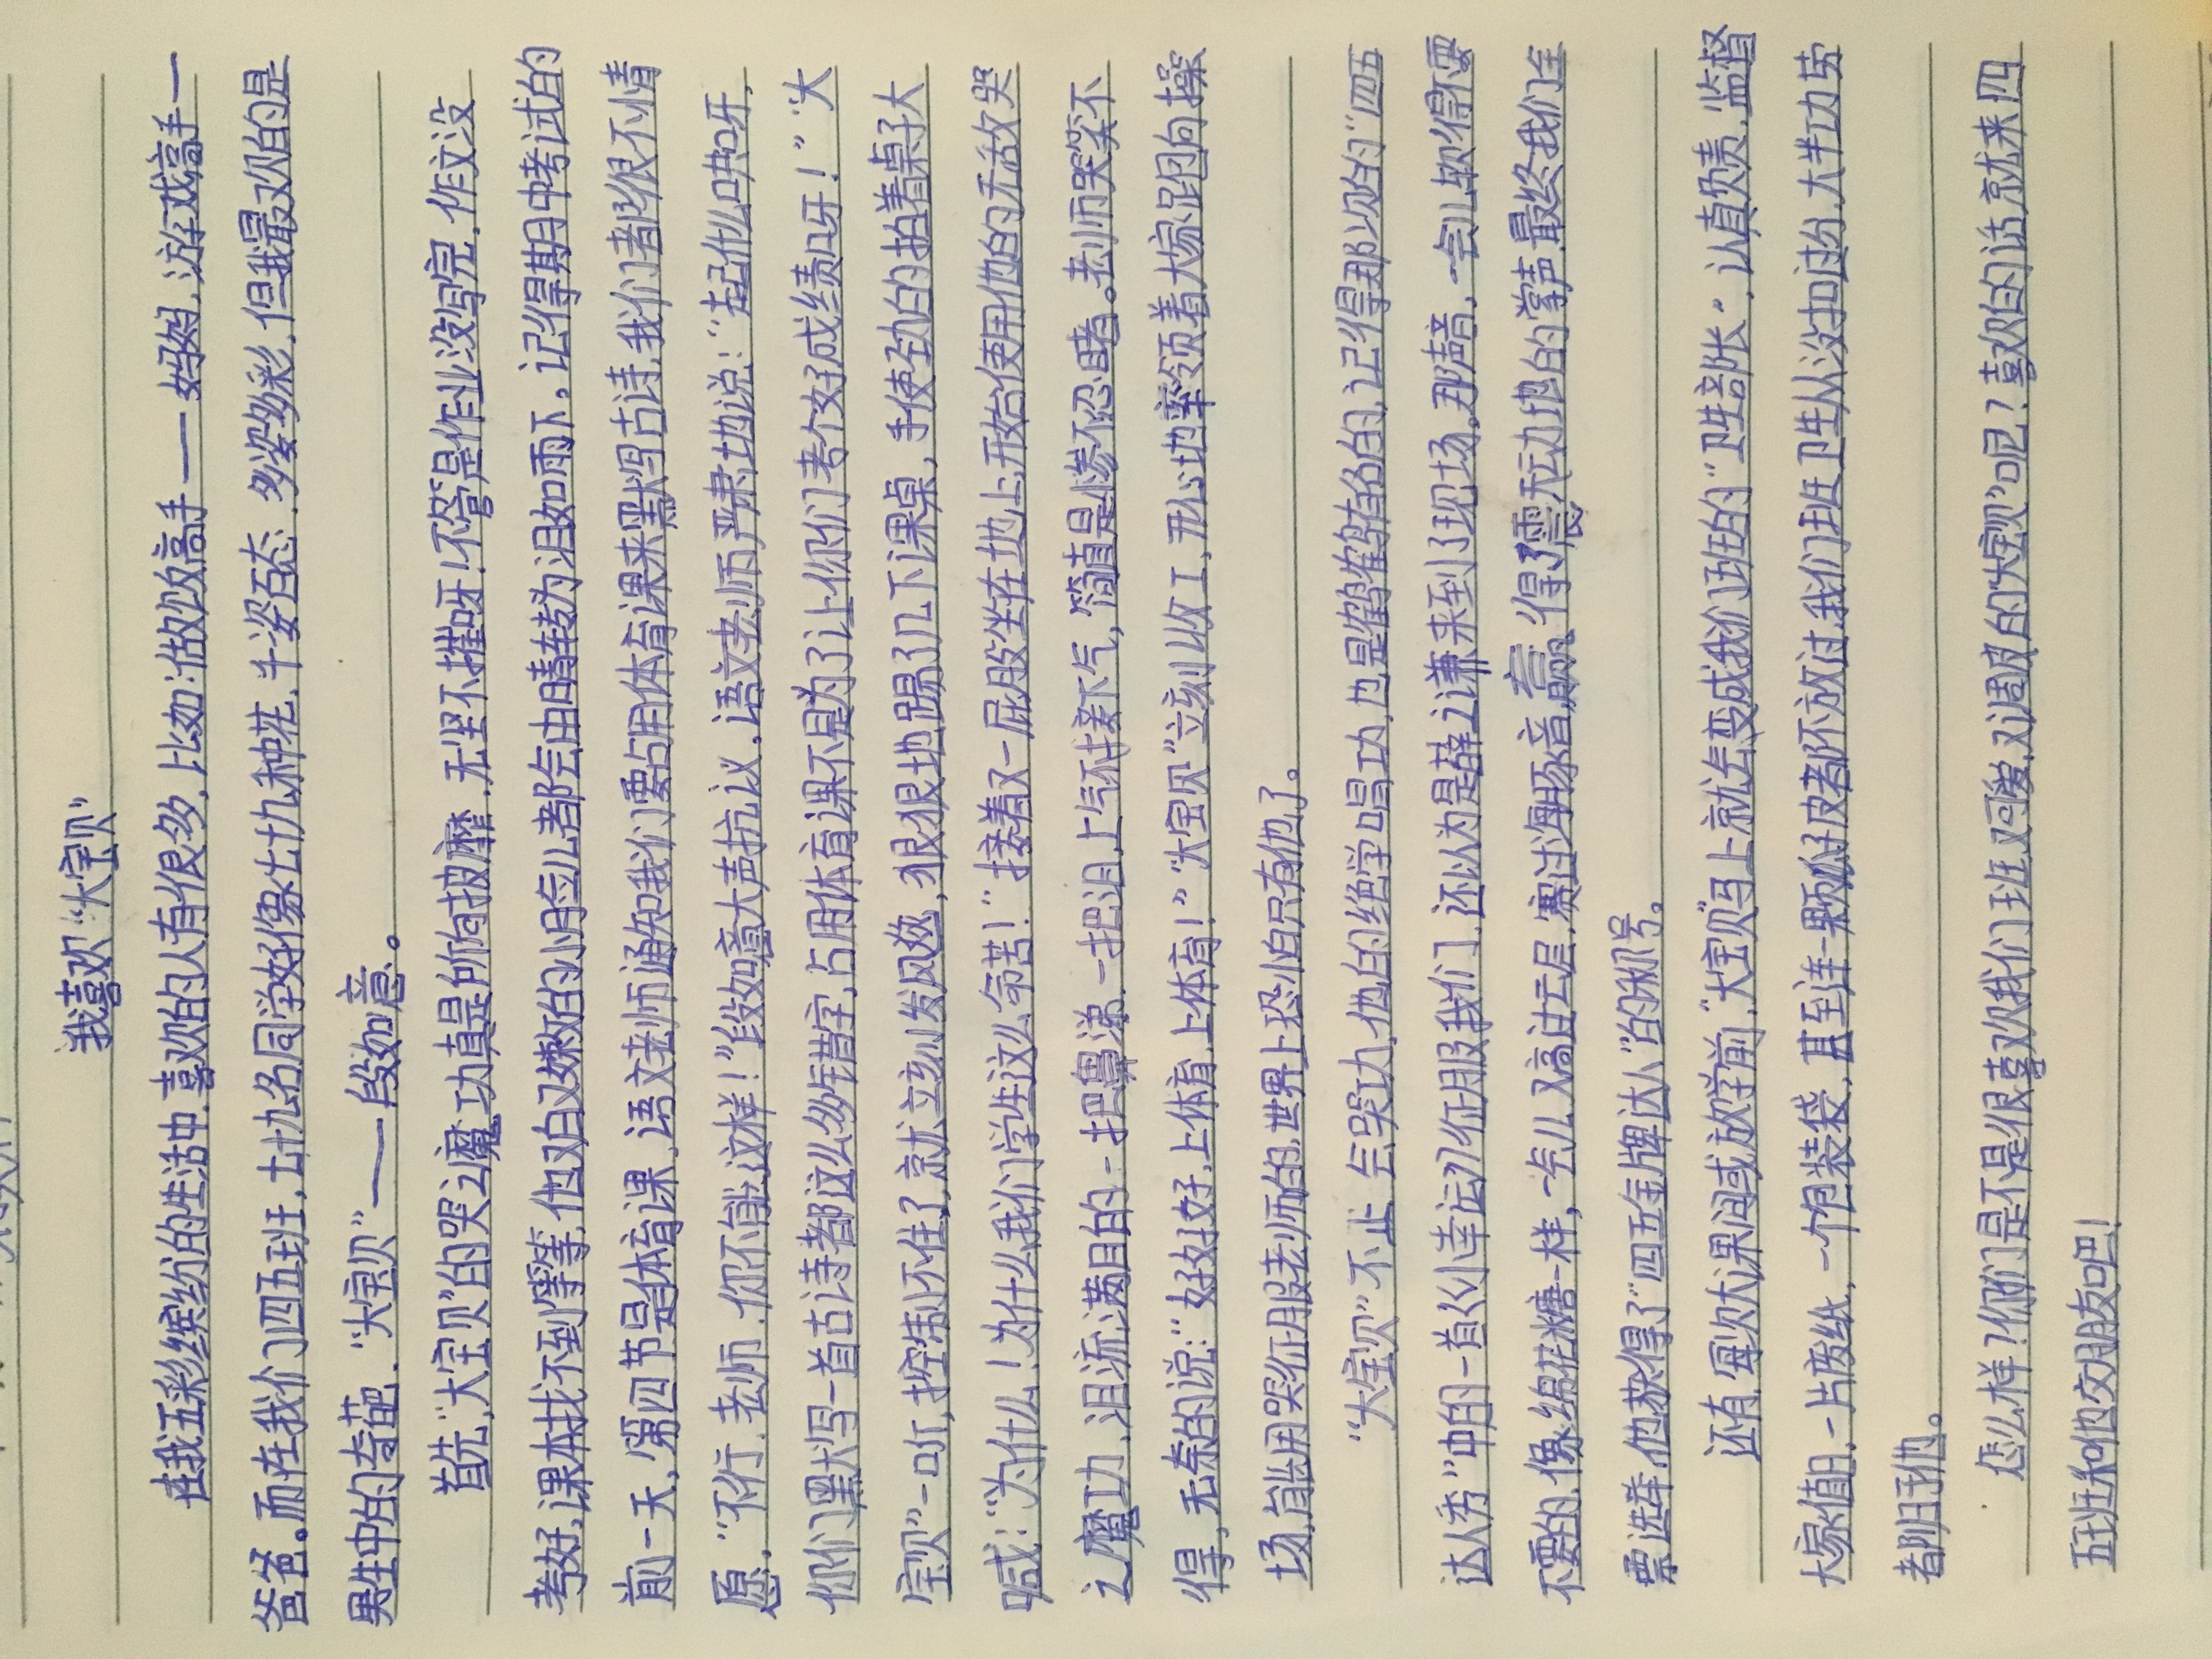 我喜欢“大宝贝”
在我五彩缤纷的生活中，喜欢的人有很多，比如：做饭高手——妈妈，游戏高手—
爸爸。而在我们四五班，七十九名同学好像七十九种花，千姿百态，多姿多彩，但我最欢的是
男生中的奇葩，“大宝贝”——段如意。
首先，“大宝贝”的哭之魔功真是所向披靡，无坚不摧呀！不管是作业没写完，作文没
考好，课本找不到等等，他对白又嫩的小脸儿都会由晴转为泪如雨下。记得期中考试的
前一天，第四节是体育课，语文老师通知我们要占用体育课来默写古诗，我们都很不情
愿，“不行，老师，你不能这样！”段如意大声抗议，语文老师严肃地说：“起什么哄呀，
你们默写一首古诗都这么多错字，占用体育课不是为了让你们考个好成绩呀！”“大
宝贝”一听，控制不住了，就立刻发风逸，狠狠地踢了几下课桌，手使劲的拍着桌子大
喊：“为什么！为什么我们学生这么命苦！”接着又一屁股坐在地上，开始使用他的无敌哭
之魔功，泪流满目的，一把鼻涕，一把泪，上气不接下气，简直是惨不忍睹。老师哭笑不
得，无奈的说：“好好好，上体育，上体育！”“大宝贝”立刻收工，开心地率领着大家跑向操
场，能用哭征服老师的，世界上恐怕只有他了。
“大宝贝”不止会哭功，他的绝学唱功，也是鹤鹤有名的，记得那次的“四五
达人秀”中的一首《小幸运》征服我们，还以为是薛之谦来到了现场，那声音，一会儿软得不要
不要的，像棉花糖一样，一会儿又高过云层，赛过海豚音，赢得了震天动地的掌声，最终我们全
票选举，他获得了“四五金牌达人”的称号。
还有，每次大课间或放学前，“大宝贝”马上就会变成我们班的“卫生部长”，认真负责，监督
大家值日，一片废纸，一个包装袋，甚至连一颗瓜子皮都不放过，我们班卫生从没扣过分，大半功劳
都归于他。
怎么样？你们是不是很喜欢我们班又可爱，又调皮的“大宝贝”呢？喜欢的话，就来四
五班和他交朋友吧！